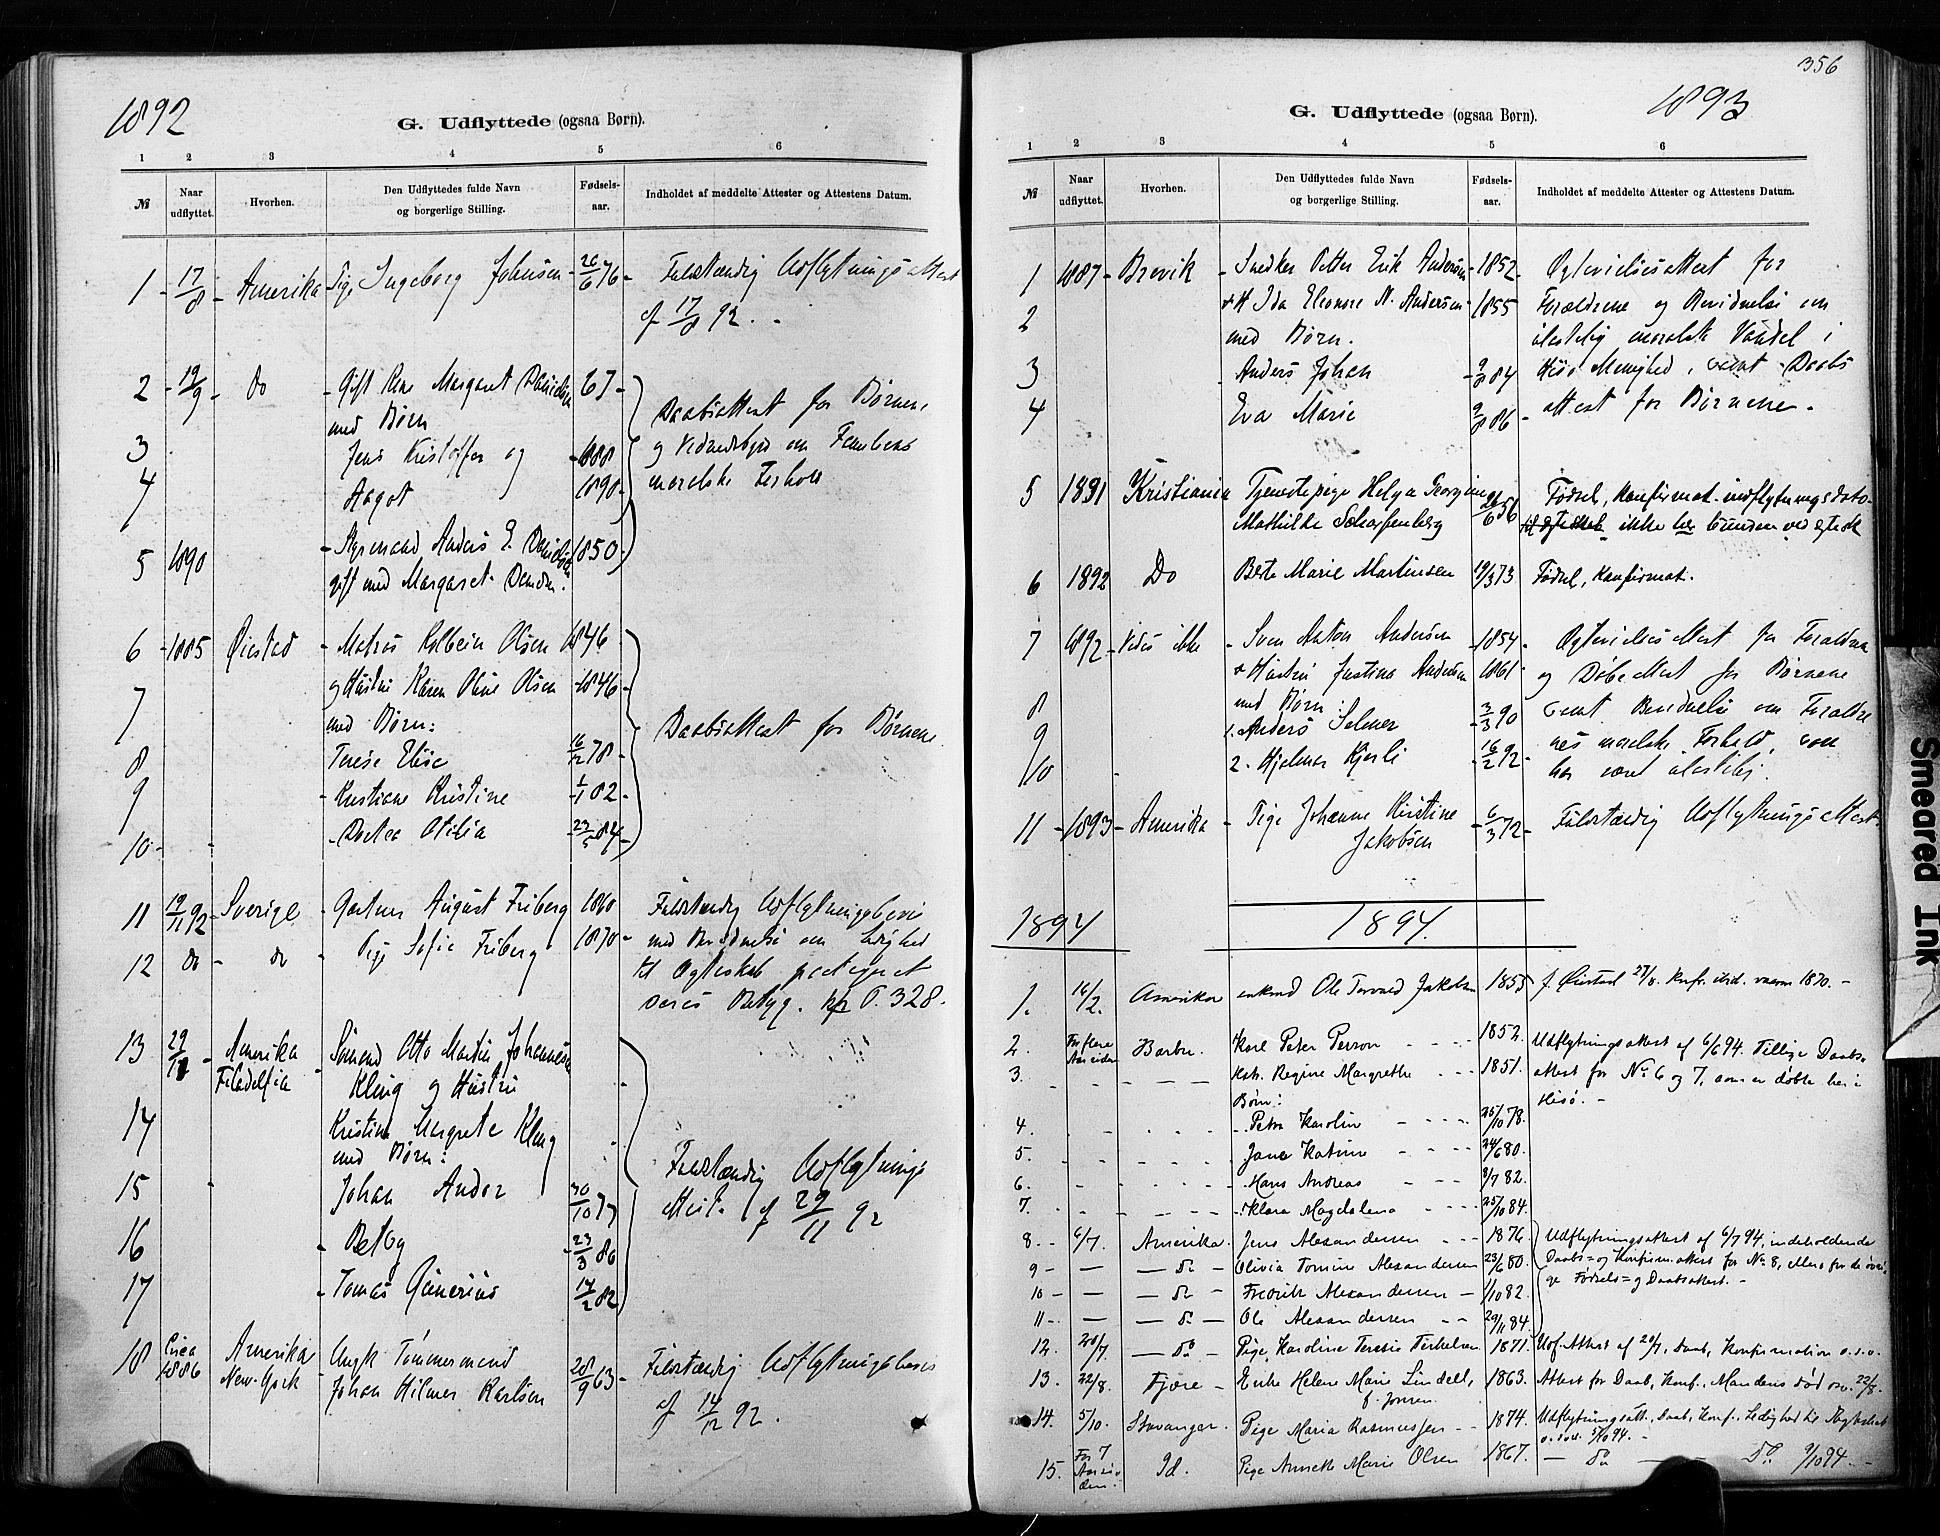 1892
G. Udflyttede (ogsaa Børn).
1 2 3 4 5 6
№ Naar udflyttet. Hvorhen. Den Udflyttedes fulde Navn og borgerlige Stilling. Fødselsaar. Indholdet af meddelte Attester og Attestens Datum.
1 - 17/8 - Amerika - Pige Ingeborg Johnsen - 26/6 76 - Fuldstændig Udflytningsattest
af 17/8 92.
2 - 19/9 - Do - Gift Kone Margaret Danielsen 67 -
med Børn
Daabsattest for Børnene,
3 Jens Kristoffer og - 1888 og Vidnesbyrd om Familiens
4 Aagot 1890 - moralske Forhold
5 1890 - Styrmand Anders E. Danielsen 1850 -
gift med Margaret Daniels.
6 - 1885 Øiestad - Matros Kolbein Olsen 1846
7 og Hustru Karen Oline Olsen - 1846 -
med Børn:
Daabsattest for Børnene
8 Terese Elise 16/12 78 -
9 - Kristiane Kristine - 1/1 82 -
10 - - Dortea Otilia - 23/5 84 -
11 19/11 92 - Sverige - Gartner August Friberg 1860 Fuldstændig Udflytningsbevis
12 do - do - Pige Sofie Friberg 1870 - med Bevidnelse om Ledighed
til Ægteskab protegeret
deres Betyg. P. 328.
13 29/11 - Amerika Sømand Otto Martin Johannesen
Filadelfia Kling og Hustru
14 Kristine Margrete Kling
med Børn:
Fuldstændig Udflytnings
15 Johan Andor 30/10 77 attest af 29/11 92
16 - Betsy - 23/3 86
17 - Tomas Generius 14/2 82
18 Circa 1886 Amerika Ungk Tømmermand
New-York - Johan Hilmer Karlsen 28/9 63 - Fuldstændig Udflytningsbevis
af 14/12 92.
356
1893
G. Udflyttede (ogsaa Børn).
1 2 3 4 5 6
№ Naar udflyttet. Hvorhen. Den Udflyttedes fulde Navn og borgerlige Stilling. Fødselsaar. Indholdet af meddelte Attester og Attestens Datum.
1 1887 - Brevik - Snedker Petter Erik Andersen - 1852 - Ægtevielsesattest for
2 & H. Ida Eleonore N. Andersen - 1855 Forældrene og Bevidnelse om
med Børn. ulastelig moralsk Vandel i
3 Anders Johan - 9/8 84 Hisø Menighed, samt Daabs
4 Eva Marie 9/8 86 - attest for Børnene.
5 1891 Kristiania Tjenestepige Helga Georgine
Mathilde Scharffenberg /6 56 Fødsel, Konfirmat. indflytningsdato
ikke her bunden ved egtesk
6 1892 Do Berte Marie Martinsen 19/3 73 Fødsel, Konfirmat.
7 1892 - Vides ikke - Sven Anton Andersen - 1854 - Ægtevielsesattest for Forældrene
& Hustru Justina Andersen 1861 - og Døbeattest for Børnene
8 med Børn: samt Bevidnelse om Foræld-
9 1. Anders Selmer - 3/3 90 nes moralske Forhold, som
10 2. Hjelmar Kjerli - 16/2 92 - har været ulastelig.
11 - 1893 - Amerika - Pige Johanne Kristine
Jakobsen - 6/3 72 - Fuldstændig Udflytningsattest.
1894 1894.
1. 16/2. Amerika enkmd Ole Torvald Jakobsen 1855 f. Øiestad 27/8. Konfr. ibid. vaaren 1870. -
2. For flere Aar siden Barbu. Karl Peter Person - - - - 1852. Udflytningsattest af 6/6 94. Tillige Daabs-
3. - - - - Katr. Regine Margrethe - - - 1851. attest for No 6 og 7, som er døbte her i
Børn: Hisø. -
4. - Petra Karolin - - - - 25/10 78.
5. Jane Katrine - - - 24/6 80.
6. - Hans Andreas - - - 8/7 82.
7. - Klara Magdalena - - - - 25/10 84.
8. - 6/7. Amerika. Jens Alexandersen - - - 1876 Udflytningsattest af 6/7 94, indeholdende
9 - — — do — Olivia Tomine Alexandersen 23/6 80. Daabs= og Konfirm.attest for No 8, ellers for de øvri-
10 - — — do — Fredrik Alexandersen — 1/10 82. ge Fødsels= og Daabsattest. -
11 - — — do — Ole Alexandersen - - 29/11 84.
12. 20/7. — do Pige Karoline Teresie Terkelsen 1871. Udf. Attest af 20/7. Daab, Konfirmation o.s.v.
13. 22/8. Fjære - Enke Helene Marie Lindell, 1863. Attest for Daab, Konf., Mandens død osv. 22/8.
f. Jonsen.
14. 5/10. Stavanger. Pige Maria Rasmussen - - 1874. Udflytningsatt., Daab, Konf., Ledighed til Ægteskab
o.s.v. 5/10 94. -
15. For 7 Aar siden Id. Pige Anneth Marie Olsen 1867. — do — — do. 9/10 94. -
Smeared Ink